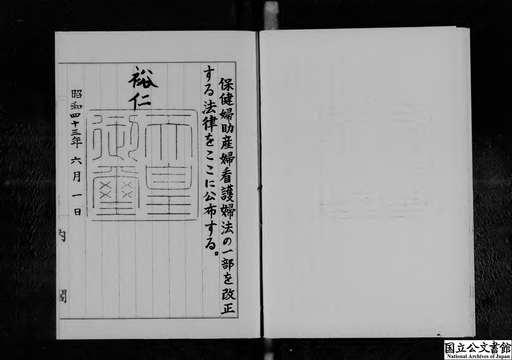 保健婦助産婦看護婦法の一部を改正
する法律をここに公布する。
裕仁
天皇
御璽
昭和四十三年六月一日
内閣
国立公文書館
National Archives of Japan